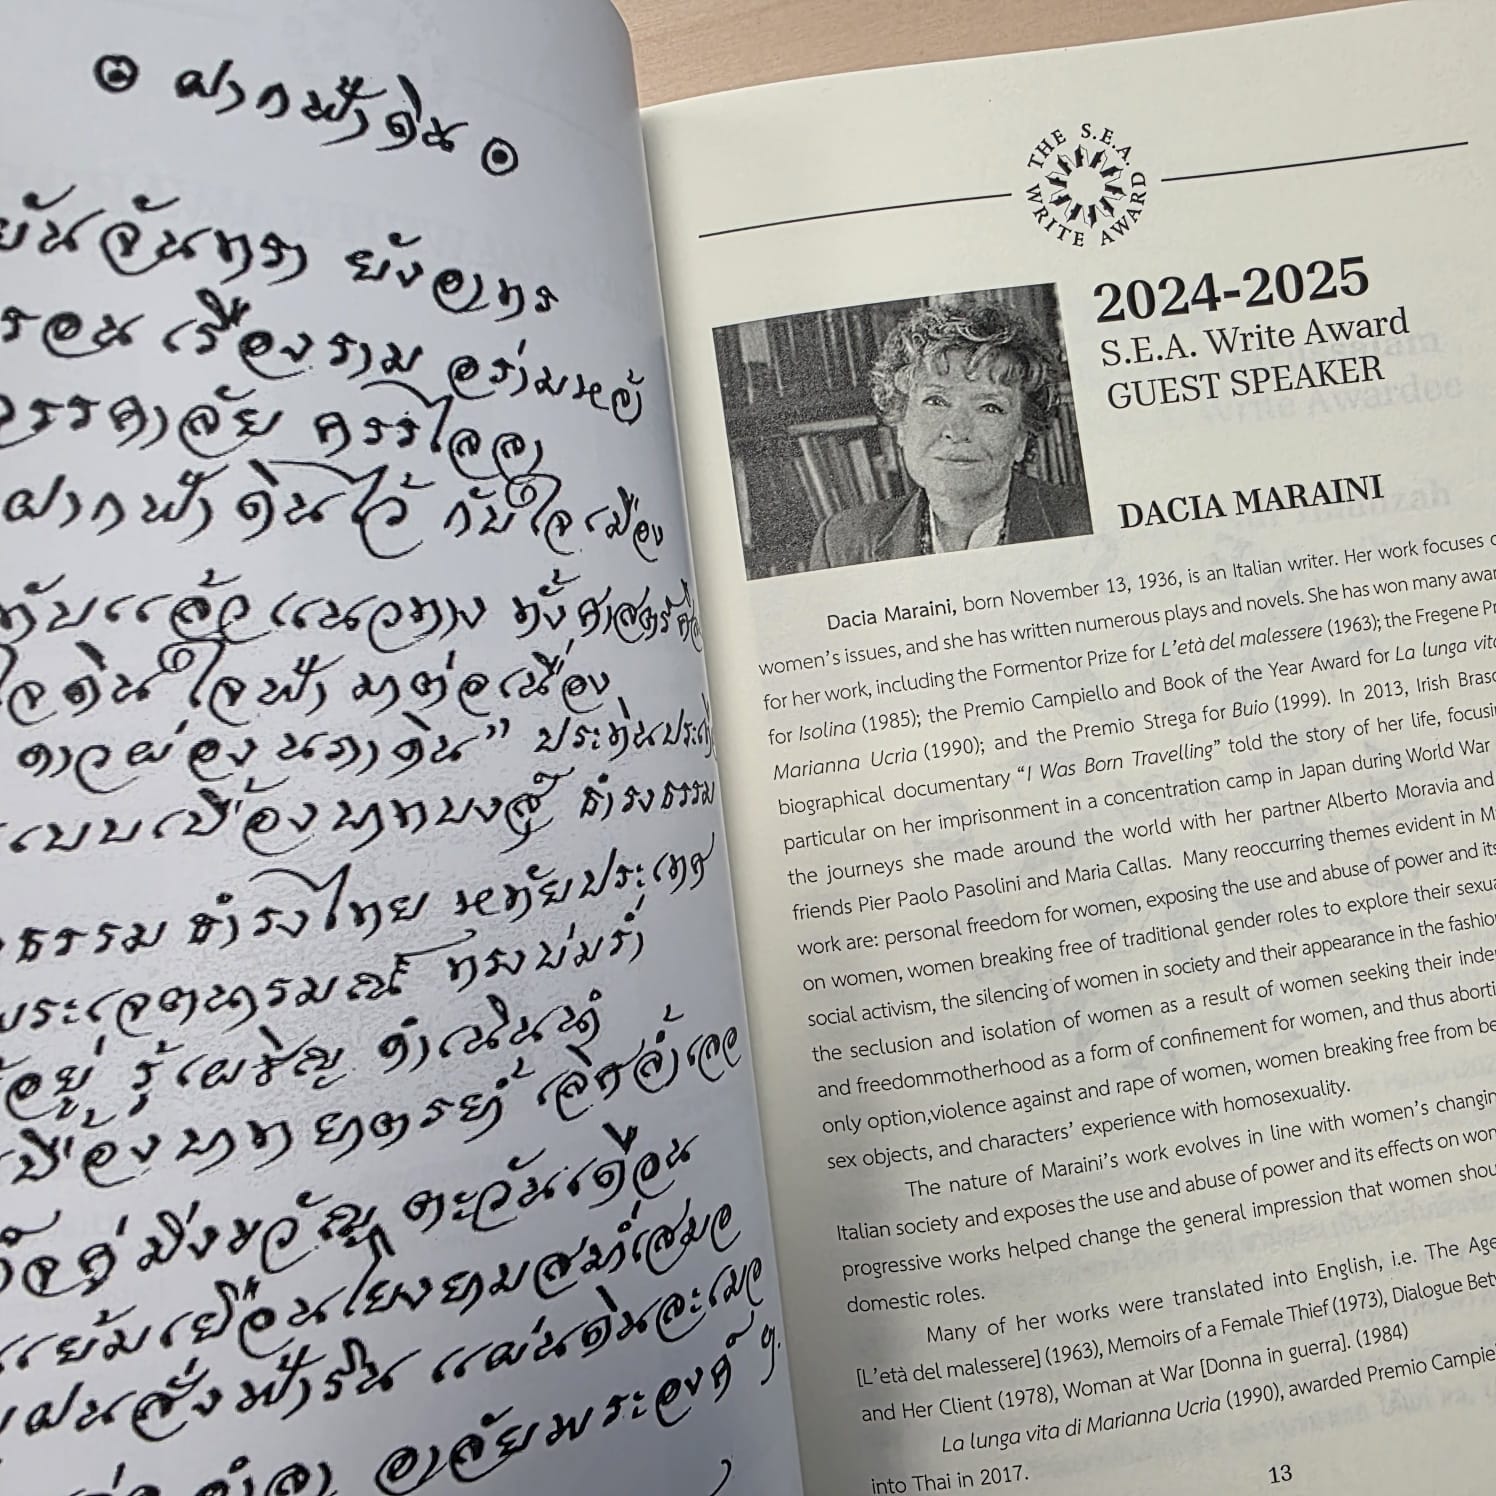 ๏ ฝากฟ้าดิน ๏
ยังอาทร
รอน เรืองราม อร่ามหล้า
ลาลัย
ฝากฟ้า ดินไว้ กับใจเมือง
แนวทาง ทั้งศาสตร์
ใจดิน ใจฟ้า มาต่อเนื่อง
ดาวผ่องนภาดิน”
แบบเบื้องบาทบงสุ์ ธำรงธรรม
ธรรม ธำรงไทย หทัยประเทศ
ทรงบ่มร่ำ
อยู่ รู้เผชิญ ดำเนินนำ
เบื้องบาทยาตรย้ำ เลิศล้ำเลอ
คู่มิ่งขวัญ ตะวันเดือน
แย้มเยือนโยงยามสม่ำเสมอ
ฝนสั่งฟ้า แผ่นดินละเมอ
อาลัยพระองค์ ฯ
THE S.E.A. WRITE AWARD
2024-2025
S.E.A. Write Award
GUEST SPEAKER
DACIA MARAINI
Dacia Maraini, born November 13, 1936, is an Italian writer. Her work focuses
women’s issues, and she has written numerous plays and novels. She has won many
for her work, including the Formentor Prize for L’età del malessere (1963); the Fregene
for Isolina (1985); the Premio Campiello and Book of the Year Award for La lunga
Marianna Ucria (1990); and the Premio Strega for Buio (1999). In 2013, Irish
biographical documentary “I Was Born Travelling” told the story of her life,
particular on her imprisonment in a concentration camp in Japan during World War
the journeys she made around the world with her partner Alberto Moravia and
friends Pier Paolo Pasolini and Maria Callas. Many reoccurring themes evident in
work are: personal freedom for women, exposing the use and abuse of power and
on women, women breaking free of traditional gender roles to explore their
social activism, the silencing of women in society and their appearance in the
the seclusion and isolation of women as a result of women seeking their
and freedommotherhood as a form of confinement for women, and thus
only option,violence against and rape of women, women breaking free from
sex objects, and characters’ experience with homosexuality.
The nature of Maraini’s work evolves in line with women’s
Italian society and exposes the use and abuse of power and its effects on
progressive works helped change the general impression that women
domestic roles.
Many of her works were translated into English, i.e. The
[L’età del malessere] (1963), Memoirs of a Female Thief (1973), Dialogue
and Her Client (1978), Woman at War [Donna in guerra]. (1984)
La lunga vita di Marianna Ucria (1990), awarded Premio
into Thai in 2017.
13